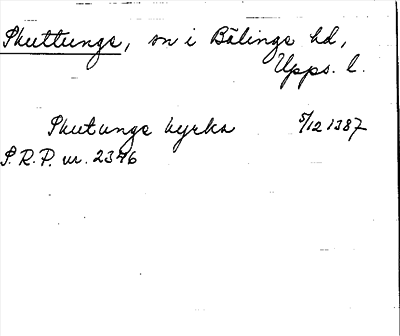 Skuttunge, sn i Bälinge hd,
Upps. l.
Skutunge kyrka 5/12 1387
S.R.P. nr. 2376